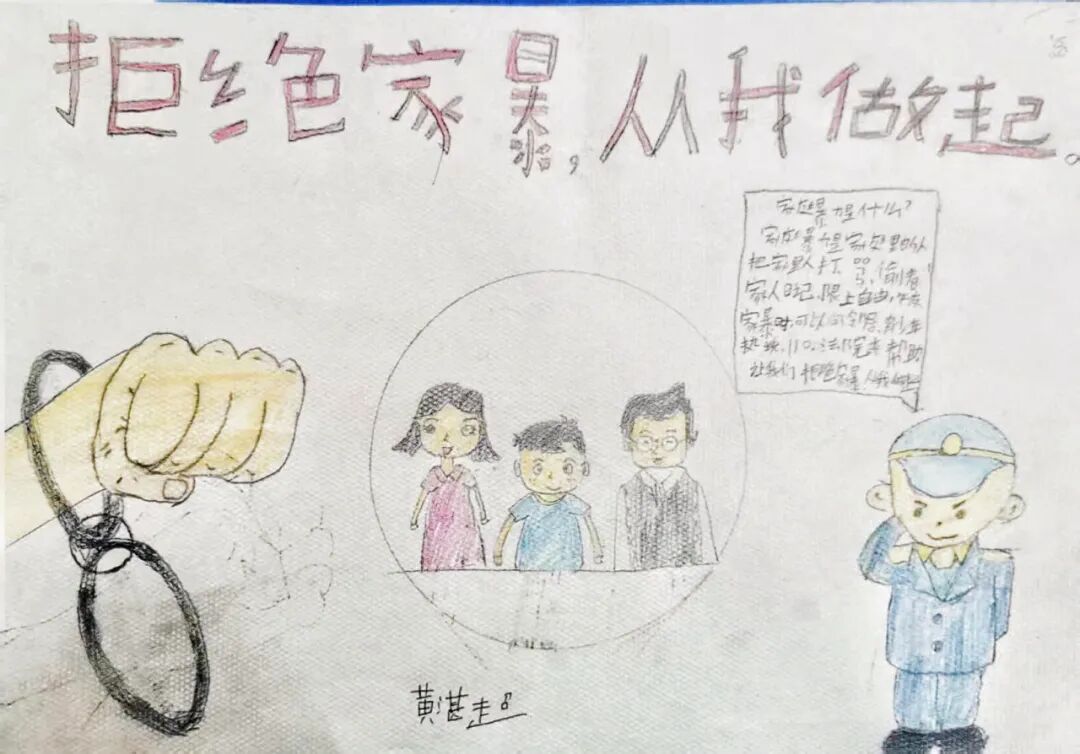 拒绝家暴，从我做起。
家庭暴力是什么?
家庭暴力是家庭里的人
把家里人打、骂、偷看
家人日记、限上自由,
家暴时,可以向
热线、110、法院来帮助
让我们拒绝家暴,从我做起
黄湛